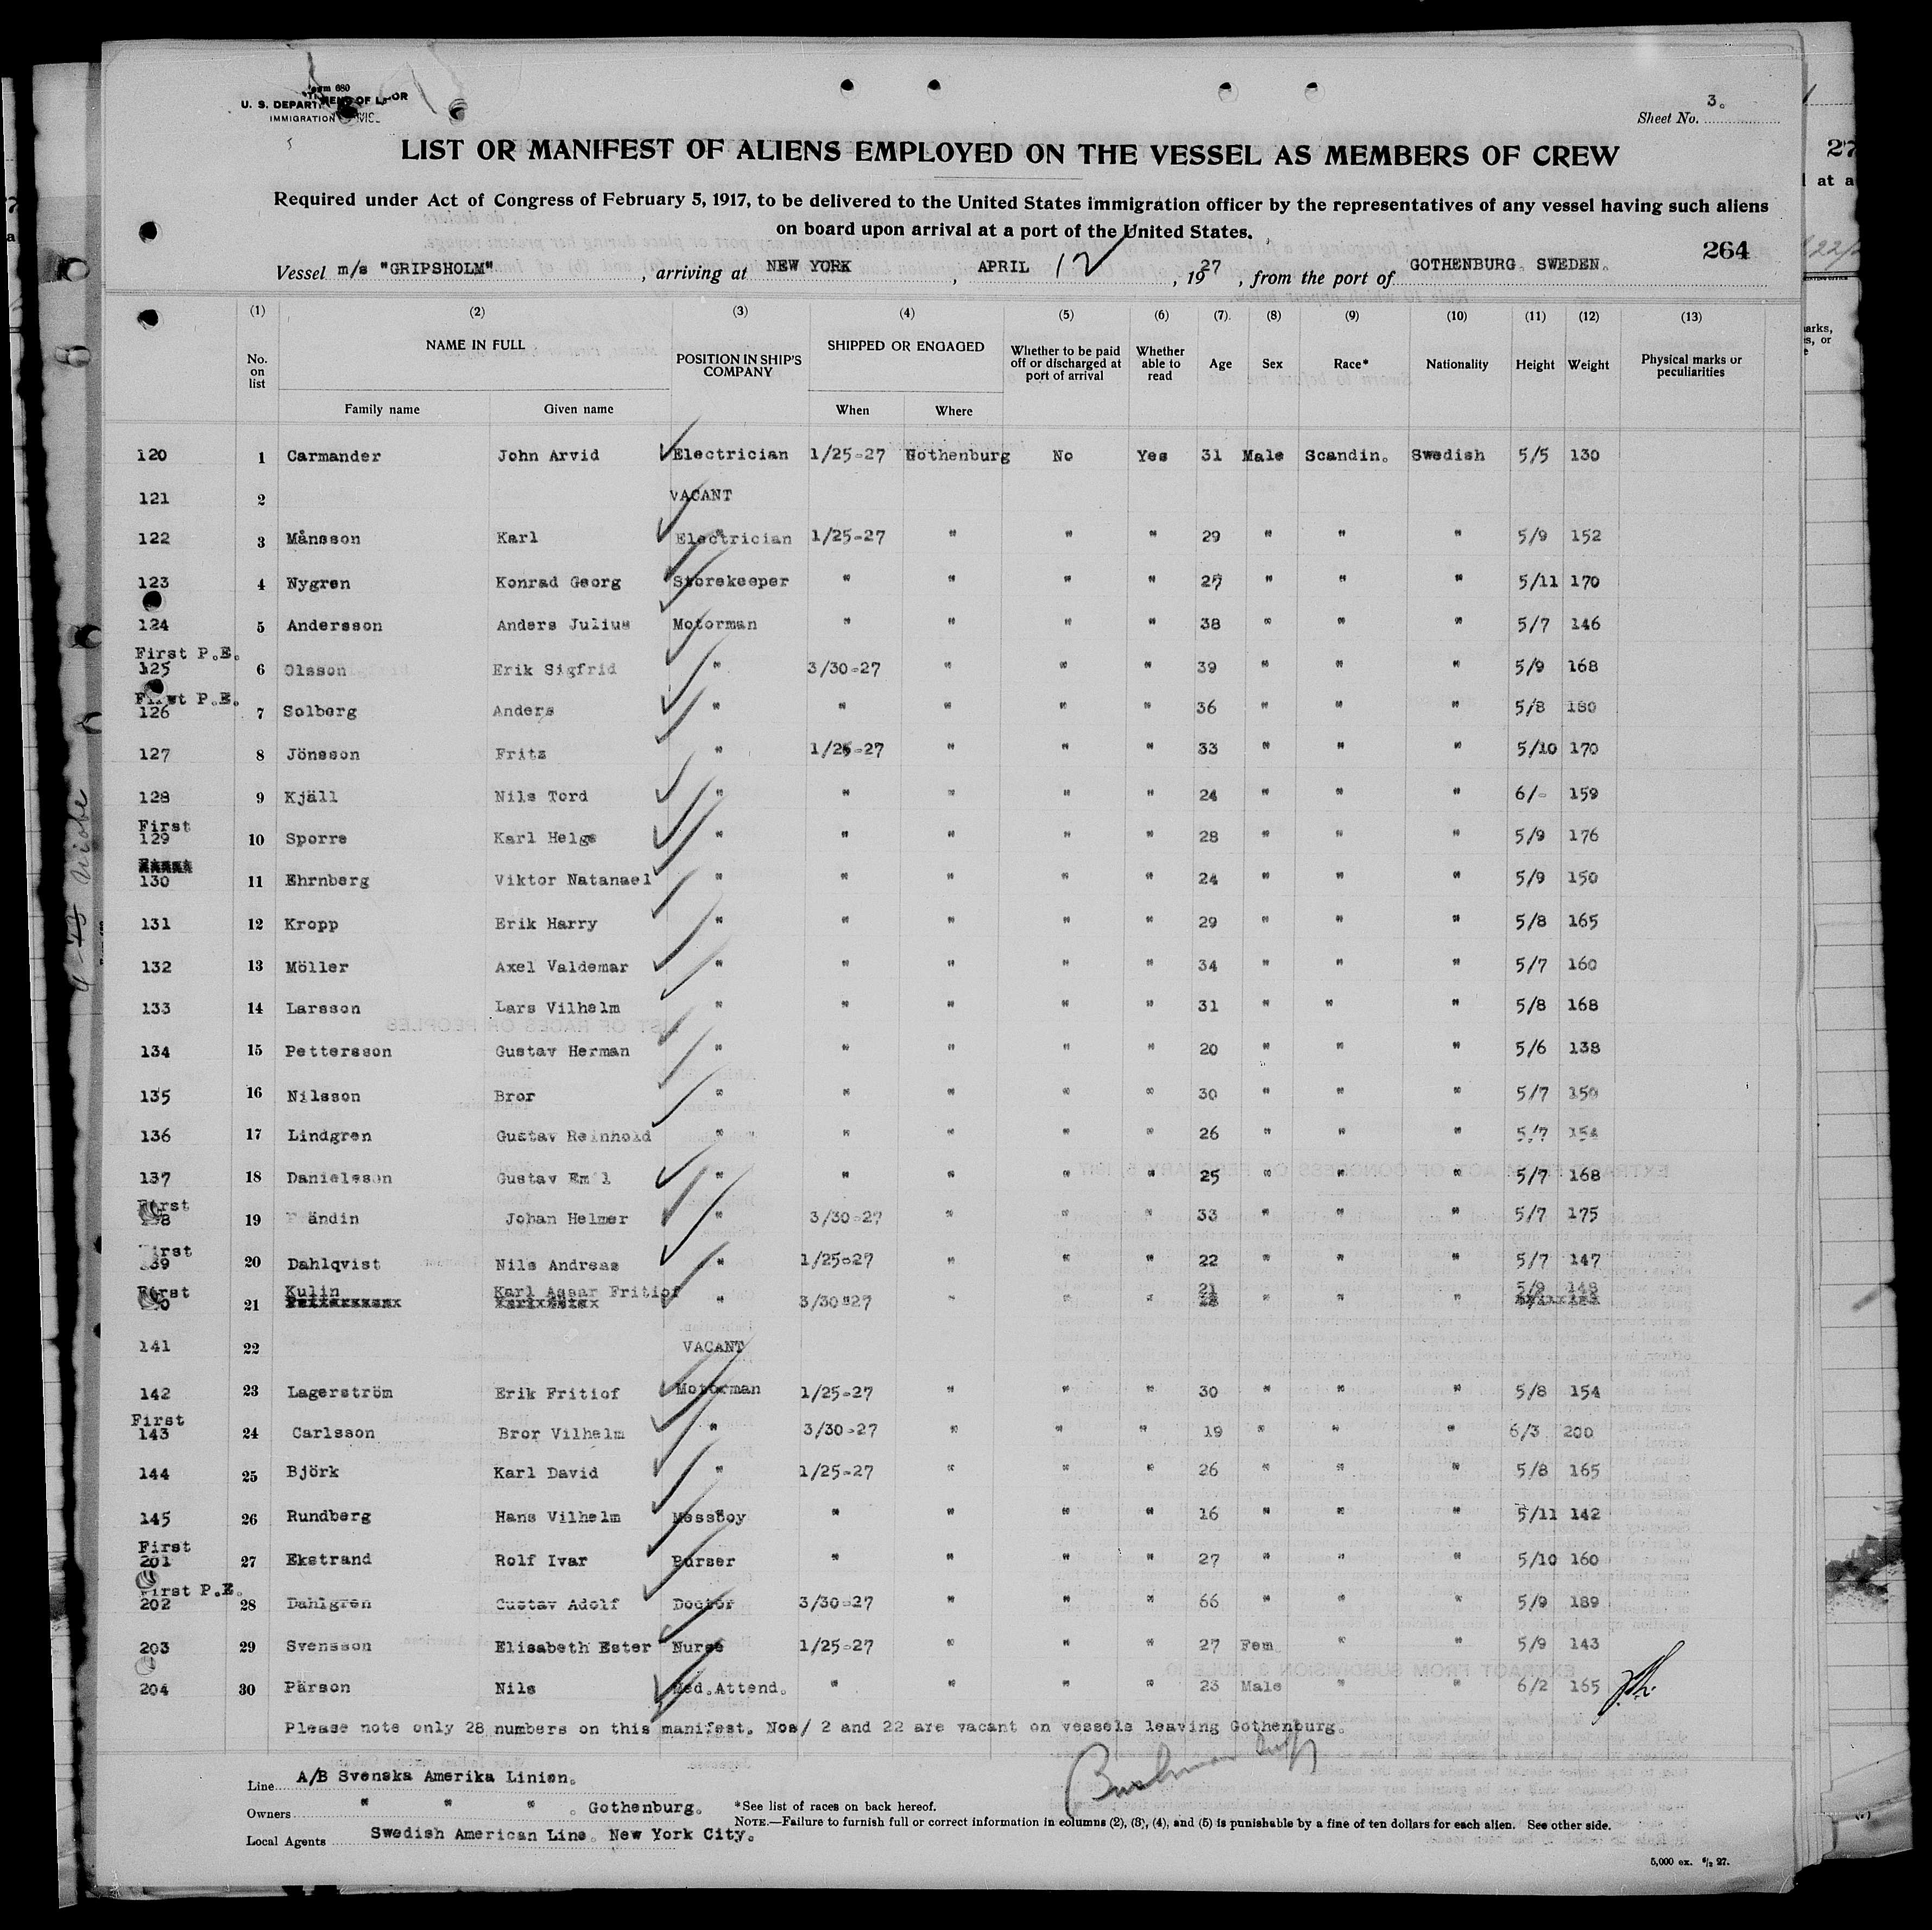 Form 680
U. S. DEPARTMENT OF LABOR
IMMIGRATION SERVICE
Sheet No. 3.
LIST OR MANIFEST OF ALIENS EMPLOYED ON THE VESSEL AS MEMBERS OF CREW
Required under Act of Congress of February 5, 1917, to be delivered to the United States immigration officer by the representatives of any vessel having such aliens
on board upon arrival at a port of the United States.
264
Vessel m/s "GRIPSHOLM", arriving at NEW YORK, APRIL 12, 1927, from the port of GOTHENBURG. SWEDEN.
(1) (2) (3) (4) (5) (6) (7) (8) (9) (10) (11) (12) (13)
No. on list NAME IN FULL POSITION IN SHIP'S COMPANY SHIPPED OR ENGAGED Whether to be paid off or discharged at port of arrival Whether able to read Age Sex Race* Nationality Height Weight Physical marks or peculiarities
Family name Given name When Where
120 1 Carmander John Arvid Electrician 1/25-27 Gothenburg No Yes 31 Male Scandin. Swedish 5/5 130
121 2 VACANT
122 3 Månsson Karl Electrician 1/25-27 " " " 29 " " " 5/9 152
123 4 Nygren Konrad Georg Storekeeper " " " " 27 " " " 5/11 170
124 5 Andersson Anders Julius Motorman " " " " 38 " " " 5/7 146
First P.E.
125 6 Olsson Erik Sigfrid " 3/30-27 " " " 39 " " " 5/9 168
First P.E.
126 7 Solberg Anders " " " " " 36 " " " 5/8 180
127 8 Jönsson Fritz " 1/25-27 " " " 33 " " " 5/10 170
128 9 Kjäll Nils Tord " " " " " 24 " " " 6/- 159
First
129 10 Sporre Karl Helge " " " " " 28 " " " 5/9 176
130 11 Ehrnberg Viktor Natanael " " " " " 24 " " " 5/9 150
131 12 Kropp Erik Harry " " " " " 29 " " " 5/8 165
132 13 Möller Axel Valdemar " " " " " 34 " " " 5/7 160
133 14 Larsson Lars Vilhelm " " " " " 31 " " " 5/8 168
134 15 Pettersson Gustav Herman " " " " " 20 " " " 5/6 138
135 16 Nilsson Bror " " " " " 30 " " " 5/7 150
136 17 Lindgren Gustav Reinhold " " " " " 26 " " " 5/7 154
137 18 Danielsson Gustav Emil " " " " " 25 " " " 5/7 168
First
138 19 ändin Johan Helmer " 3/30-27 " " " 33 " " " 5/7 175
First
139 20 Dahlqvist Nils Andreas " 1/25-27 " " " 22 " " " 5/7 147
First Kulin Karl Agsar Fritiof 21 5/9 148
21 " 3/30-27 " " " " " "
141 22 VACANT
142 23 Lagerström Erik Fritiof Motorman 1/25-27 " " " 30 " " " 5/8 154
First
143 24 Carlsson Bror Vilhelm " 3/30-27 " " " 19 " " " 6/3 200
144 25 Björk Karl David " 1/25-27 " " " 26 " " " 5/8 165
145 26 Rundberg Hans Vilhelm Messboy " " " " 16 " " " 5/11 142
First
201 27 Ekstrand Rolf Ivar Purser " " " " 27 " " " 5/10 160
First P.E.
202 28 Dahlgren Gustav Adolf Doctor 3/30-27 " " " 66 " " " 5/9 189
203 29 Svensson Elisabeth Ester Nurse 1/25-27 " " " 27 Fem " " 5/9 143
204 30 Pärson Nils Med.Attend. " " " " 23 Male " " 6/2 165
Please note only 28 numbers on this manifest. Nos/ 2 and 22 are vacant on vessels leaving Gothenburg.
Line A/B Svenska Amerika Linien.
Owners " " " . Gothenburg.
Local Agents Swedish American Line. New York City.
*See list of races on back hereof.
NOTE.—Failure to furnish full or correct information in columns (2), (3), (4), and (5) is punishable by a fine of ten dollars for each alien. See other side.
5,000 ex. 6/2 27.